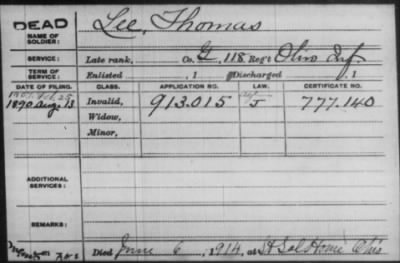 DEAD
NAME OF SOLDIER:
Lee, Thomas
SERVICE:
Late rank, Co. G, 118 Reg't Ohio Inf.
TERM OF SERVICE:
Enlisted , 1 Discharged , 1
DATE OF FILING. CLASS. APPLICATION NO. LAW. CERTIFICATE NO.
1890 Aug. 13 Invalid, 913.015 J 777.140
Widow,
Minor,
ADDITIONAL SERVICES:
REMARKS:
Died June 6, 1914, at Home Ohio